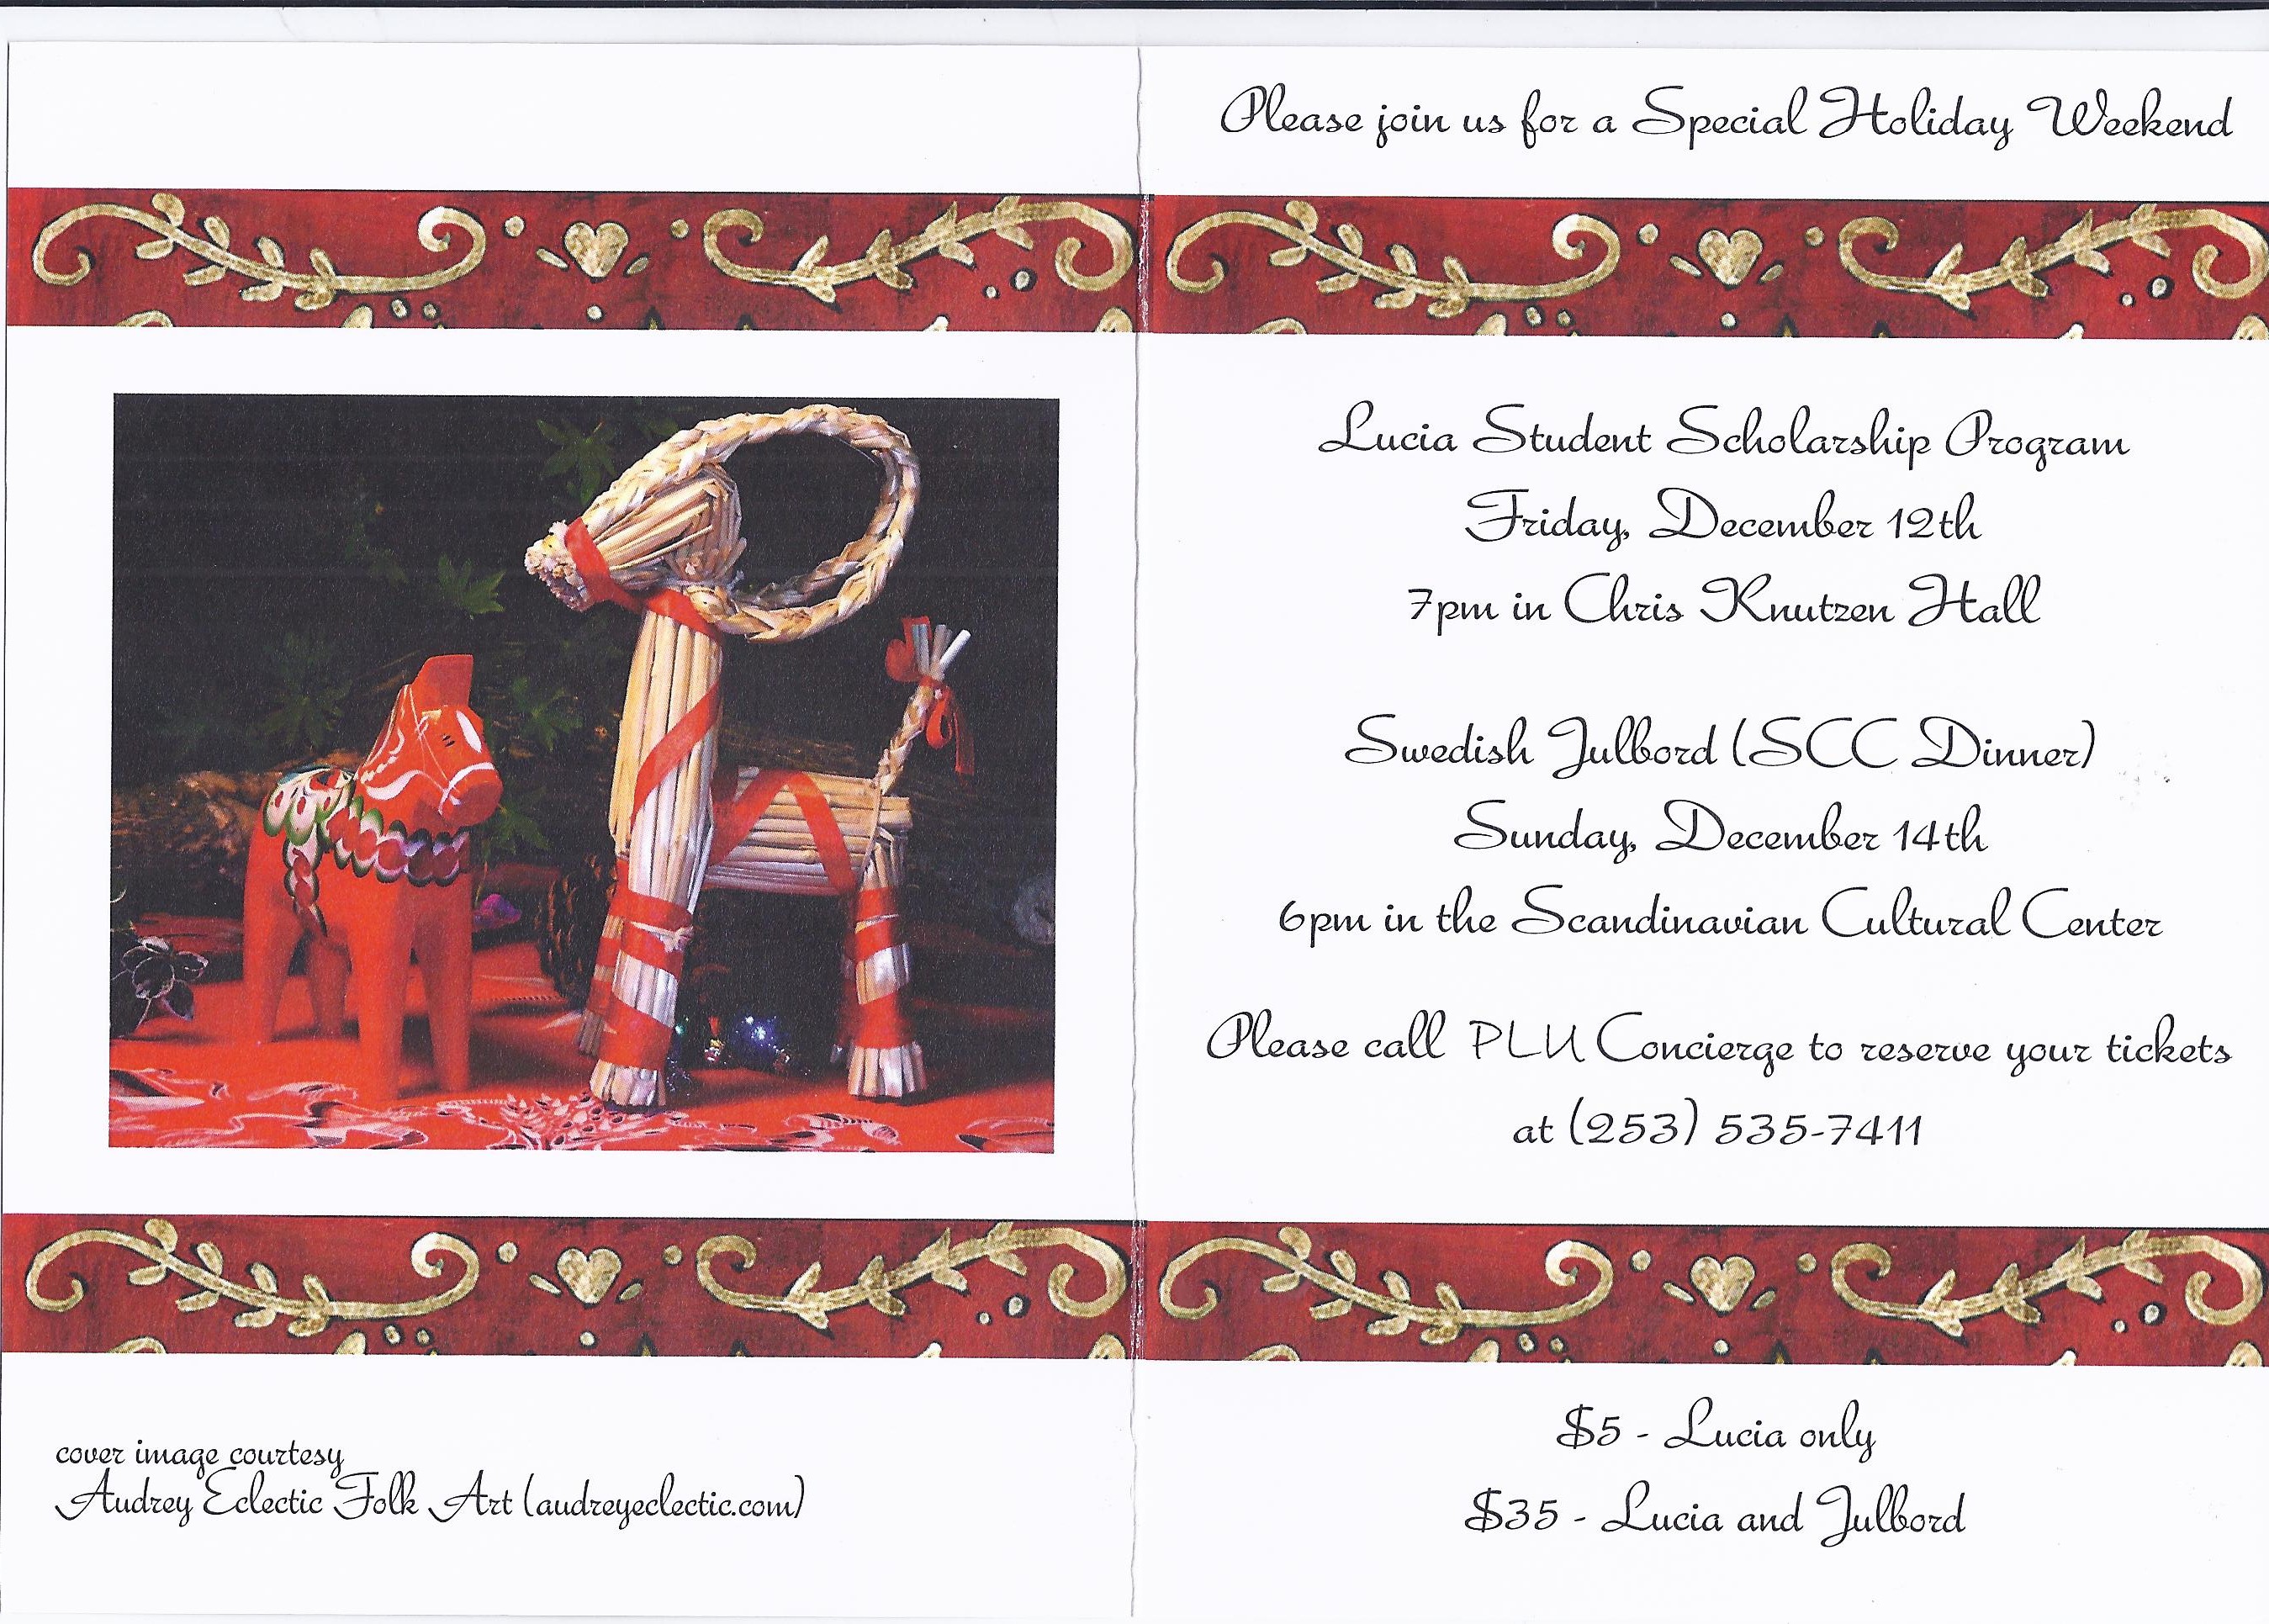 Please join us for a Special Holiday Weekend
Lucia Student Scholarship Program
Friday, December 12th
7pm in Chris Knutzen Hall
Swedish Julbord (SCC Dinner)
Sunday, December 14th
6pm in the Scandinavian Cultural Center
Please call PLU Concierge to reserve your tickets
at (253) 535-7411
$5 - Lucia only
$35 - Lucia and Julbord
cover image courtesy
Audrey Eclectic Folk Art (audreyeclectic.com)